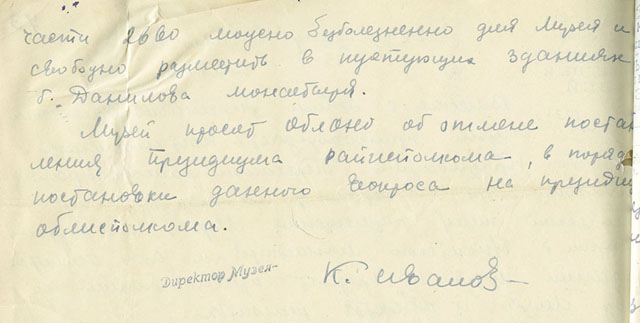 части 2660 можно безболезненно для Музея и
свободно разместить в пустующих зданиях
б. Данилова монастыря.
Музей просит ОблОНО об отмене постан
ления Президиума райисполкома, в поряд
постановки данного вопроса на президи
облисполкома.
Директор Музея- К. Иванов